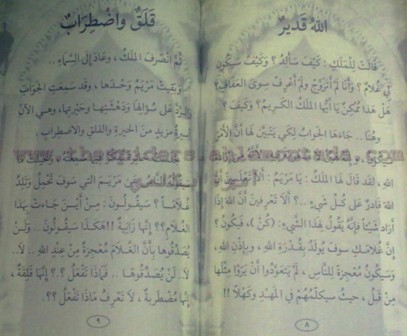 اللهُ قَدِيرٌ
قَالَتْ لِلْمَلَكِ : كَيْفَ سَأَلِدُ ؟ وَكَيْفَ سَيَكُونُ
لِي غُلَامٌ ؟ وَأَنَا لَمْ أَتَزَوَّجْ وَلَمْ أَعْرِفْ سِوَى العَفَافِ ؟
هَلْ هَذَا مُمْكِنٌ يَا أَيُّهَا المَلَكُ الكَرِيمُ ؟ وَكَيْفَ ؟
وَهُنَا .. جَاءَهَا الجَوَابُ لِكَي يَتَبَيَّنَ لَهَا أَنَّ الأَمْرَ
اللهِ ، لَقَدْ قَالَ لَهَا المَلَكُ : يَا مَرْيَمُ : أَلَا تَعْلَمِينَ أَنَّ
اللهَ قَادِرٌ عَلَى كُلِّ شَيْءٍ .. ؟ أَلَا تَعْرِفِينَ أَنَّ اللهَ إِذَا
أَرَادَ شَيْئاً فَإِنَّهُ يَقُولُ لِهَذَا الشَّيْءِ : (كُنْ) ، فَيَكُونُ ؟
إِنَّ غُلَامَكِ سَوْفَ يُولَدُ بِقُدْرَةِ اللهِ ، وَبِإِذْنِ اللهِ ،
وَسَيَكُونُ مُعْجِزَةً لِلنَّاسِ ، لَمْ يَتَعَوَّدُوا أَنْ يَرَوْا مِثْلَهَا
مِنْ قَبْلُ ، حَيْثُ سَيُكَلِّمُهُمْ فِي المَهْدِ وَكَهْلًا !!
٨
قَلَقٌ وَاضْطِرَابٌ
ثُمَّ انْصَرَفَ المَلَكُ ، وَعَادَ إِلَى السَّمَاءِ ..
وَبَقِيَتْ مَرْيَمُ وَحْدَهَا ، وَقَدْ سَمِعَتِ الجَوَابَ
عَلَى سُؤَالِهَا وَدَهْشَتِهَا وَحَيْرَتِهَا ، وَهِيَ الآنَ
مَزِيدٍ مِنَ الحَيْرَةِ وَالقَلَقِ وَالاضْطِرَابِ .
النَّاسُ عَنْ مَرْيَمَ الَّتِي سَوْفَ تَحْمِلُ وَتَلِدُ
غُلَاماً ؟ سَيَقُولُونَ : مِنْ أَيْنَ جَاءَتْ بِهَذَا
الغُلَامِ ؟؟ إِنَّهَا زَانِيَةٌ !! هَكَذَا سَيَقُولُونَ .. وَلَنْ
يُصَدِّقُوهَا بِأَنَّ الغُلَامَ مُعْجِزَةٌ مِنْ عِنْدِ اللهِ .. لَا ..
لَا .. لَنْ يُصَدِّقُوهَا .. فَمَاذَا تَفْعَلُ ؟ .. إِنَّهَا قَلِقَةٌ ،
إِنَّهَا مُضْطَرِبَةٌ ، لَا تَعْرِفُ مَاذَا تَفْعَلُ ؟؟.
٩